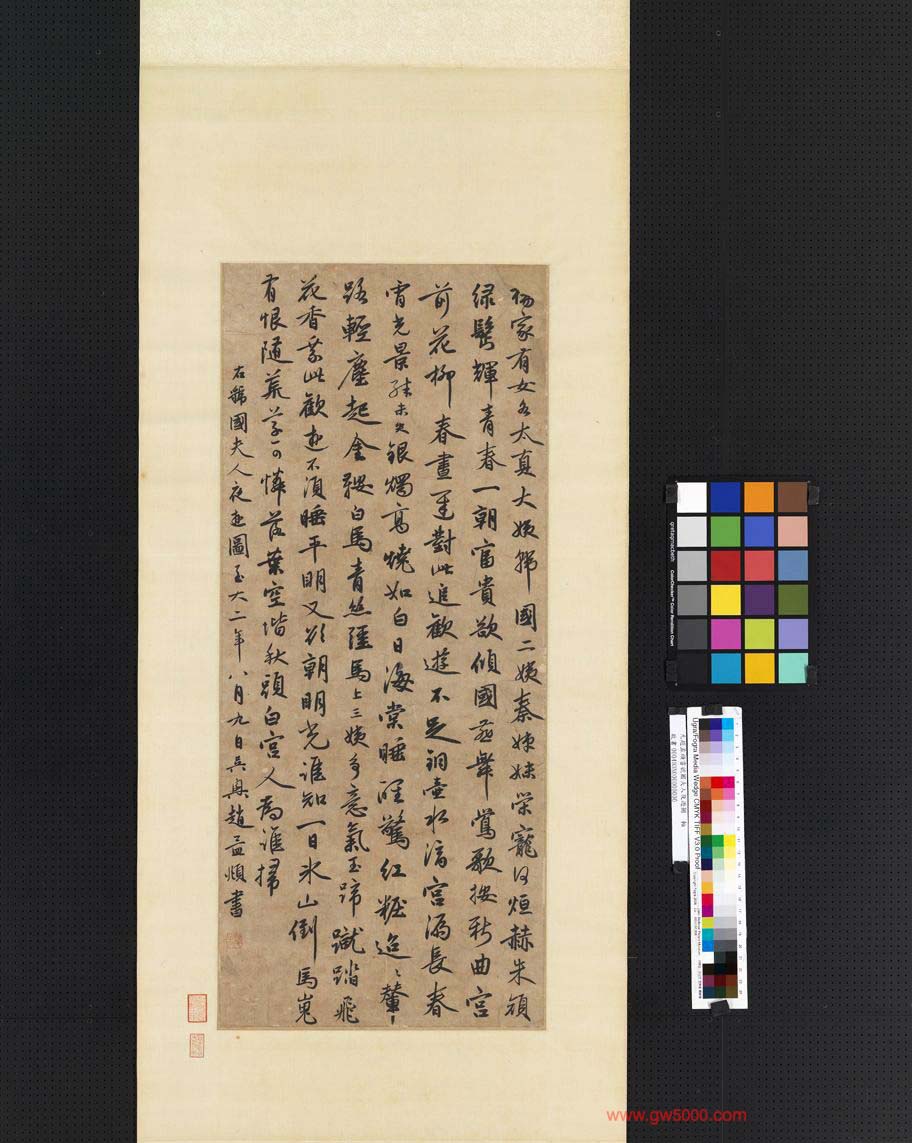 楊家有女名太真大姨虢國二姨秦姊妹榮寵何烜赫朱顏
綠鬢輝青春一朝富貴欲傾國燕舞鶯歌按新曲宮
前花柳春晝遲對此追歡遊不足銅壺水滴宮漏長春
宵光景殊未央銀燭高燒如白日海棠睡醒驚紅粧迢〻輦
路輕塵起金鞍白馬青絲韁馬上三姨多意氣玉蹄蹴踏飛
花香乘此歡遊不須睡平明又欲朝明光誰知一日氷山倒馬嵬
有恨隨荒草可憐落葉空堦秋頭白宮人為誰掃
右虢國夫人夜遊圖至大二年八月九日吳興趙孟頫書
gretagmacbeth
ColorChecker™ Color Rendition Chart
Ugra/Fogra Media Wedge CMYK TIFF V3.0 Proof
www.gw5000.com